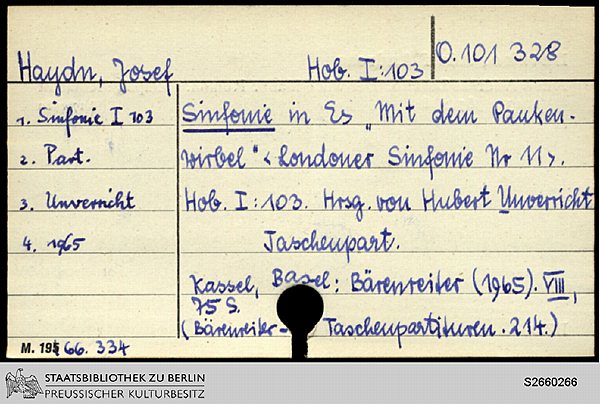 Haydn, Josef Hob. I:103 O.101 328
1. Sinfonie I 103
2. Part.
3. Unverricht
4. 1965
Sinfonie in Es „Mit dem Pauken-
wirbel“ <Londoner Sinfonie Nr 11>.
Hob. I:103. Hrsg. von Hubert Unverricht
Taschenpart.
Kassel, Basel: Bärenreiter (1965). VIII,
75 S.
(Bärenreiter- Taschenpartituren. 214.)
M. 66. 334
STAATSBIBLIOTHEK ZU BERLIN
PREUSSISCHER KULTURBESITZ
S2660266